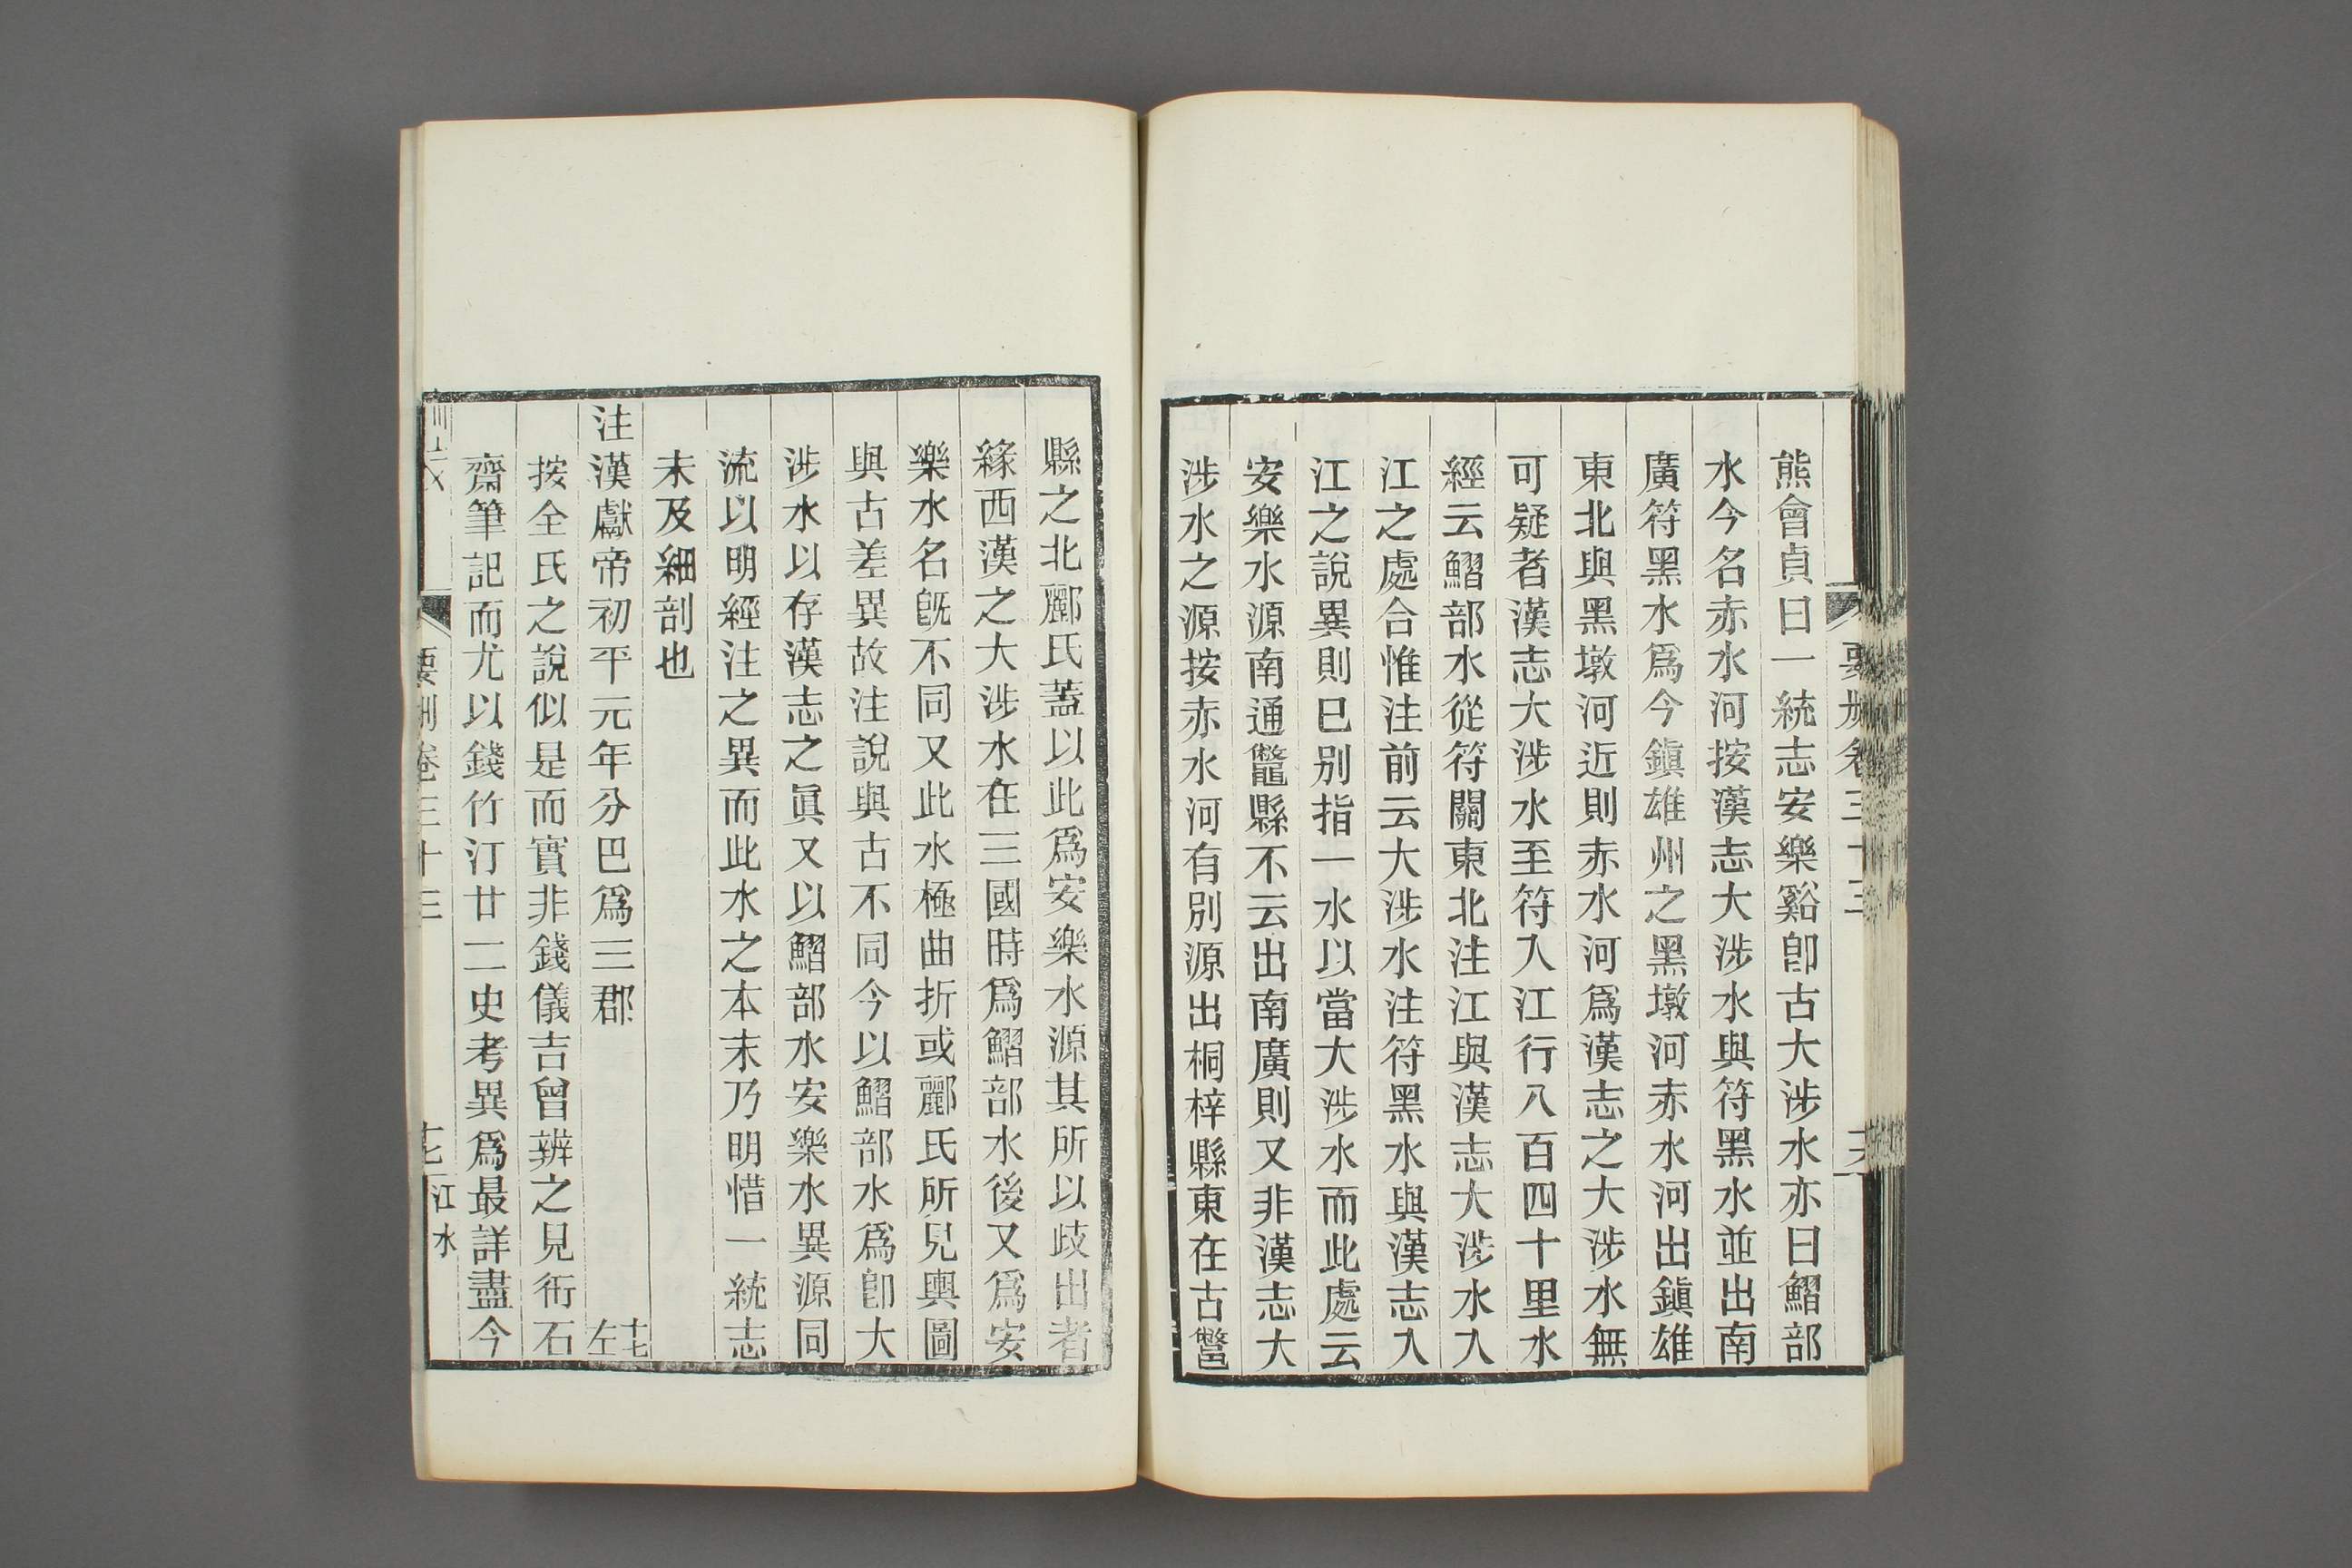 熊會貞曰一統志安樂谿卽古大涉水亦曰鰼部
水今名赤水河按漢志大涉水與符黑水並出南
廣符黑水爲今鎭雄州之黑墩河赤水河出鎭雄
東北與黑墩河近則赤水河爲漢志之大涉水無
可疑者漢志大涉水至符入江行八百四十里水
經云鰼部水從符關東北注江與漢志大涉水入
江之處合惟注前云大涉水注符黑水與漢志入
江之說異則已別指一水以當大涉水而此處云
安樂水源南通鼈縣不云出南廣則又非漢志大
涉水之源按赤水河有別源出桐梓縣東在古鄨
縣之北酈氏蓋以此爲安樂水源其所以歧出者
緣西漢之大涉水在三國時爲鰼部水後又爲安
樂水名旣不同又此水極曲折或酈氏所見輿圖
與古差異故注說與古不同今以鰼部水爲卽大
涉水以存漢志之眞又以鰼部水安樂水異源同
流以明經注之異而此水之本末乃明惜一統志
未及細剖也
注漢獻帝初平元年分巴爲三郡 十七左
按全氏之說似是而實非錢儀吉曾辨之見衎石
齋筆記而尤以錢竹汀廿二史考異爲最詳盡今
要刪卷三十三 十七 江水